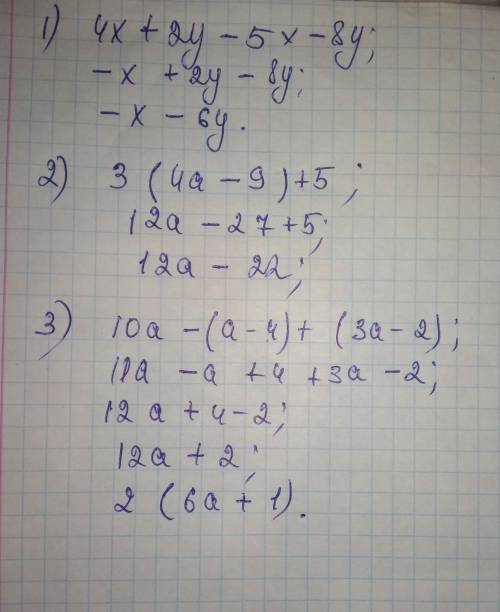 1) 4x + 2y - 5x - 8y;
- x + 2y - 8y;
- x - 6y.
2) 3 (4a - 9) + 5;
12a - 27 + 5;
12a - 22;
3) 10a - (a - 4) + (3a - 2);
10a - a + 4 + 3a - 2;
12a + 4 - 2;
12a + 2;
2 (6a + 1).